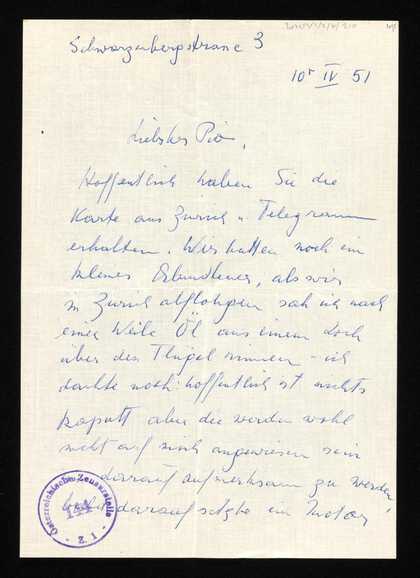 Schwarzenbergstrasse 3
10' IV 51
Liebster Pio,
Hoffentlich haben Sie die
Karte aus Zürich u Telegramm
erhalten. Wir hatten noch ein
kleines als wir
in Zürich abflogen sah ich nach
einer Weile Öl aus einem Loch
über den Flügel rinnen - ich
dachte noch: hoffentlich ist nichts
kaputt aber die werden wohl
nicht auf mich angewiesen sein
darauf aufmerksam zu werden,
bald darauf setzte ein Motor
Österreichische Zensurstelle
144
- Z. 1 -